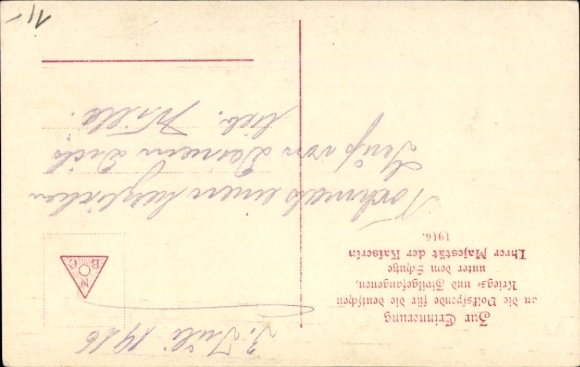 3. Juli 1916
Nochmals einen herzlichen
Gruß von Deinem Dich
lieb. Willi.
Zur Erinnerung
an die Volksspende für die deutschen
Kriegs- und Zivilgefangenen,
unter dem Schutze
Ihrer Majestät der Kaiserin
1916.
1,-